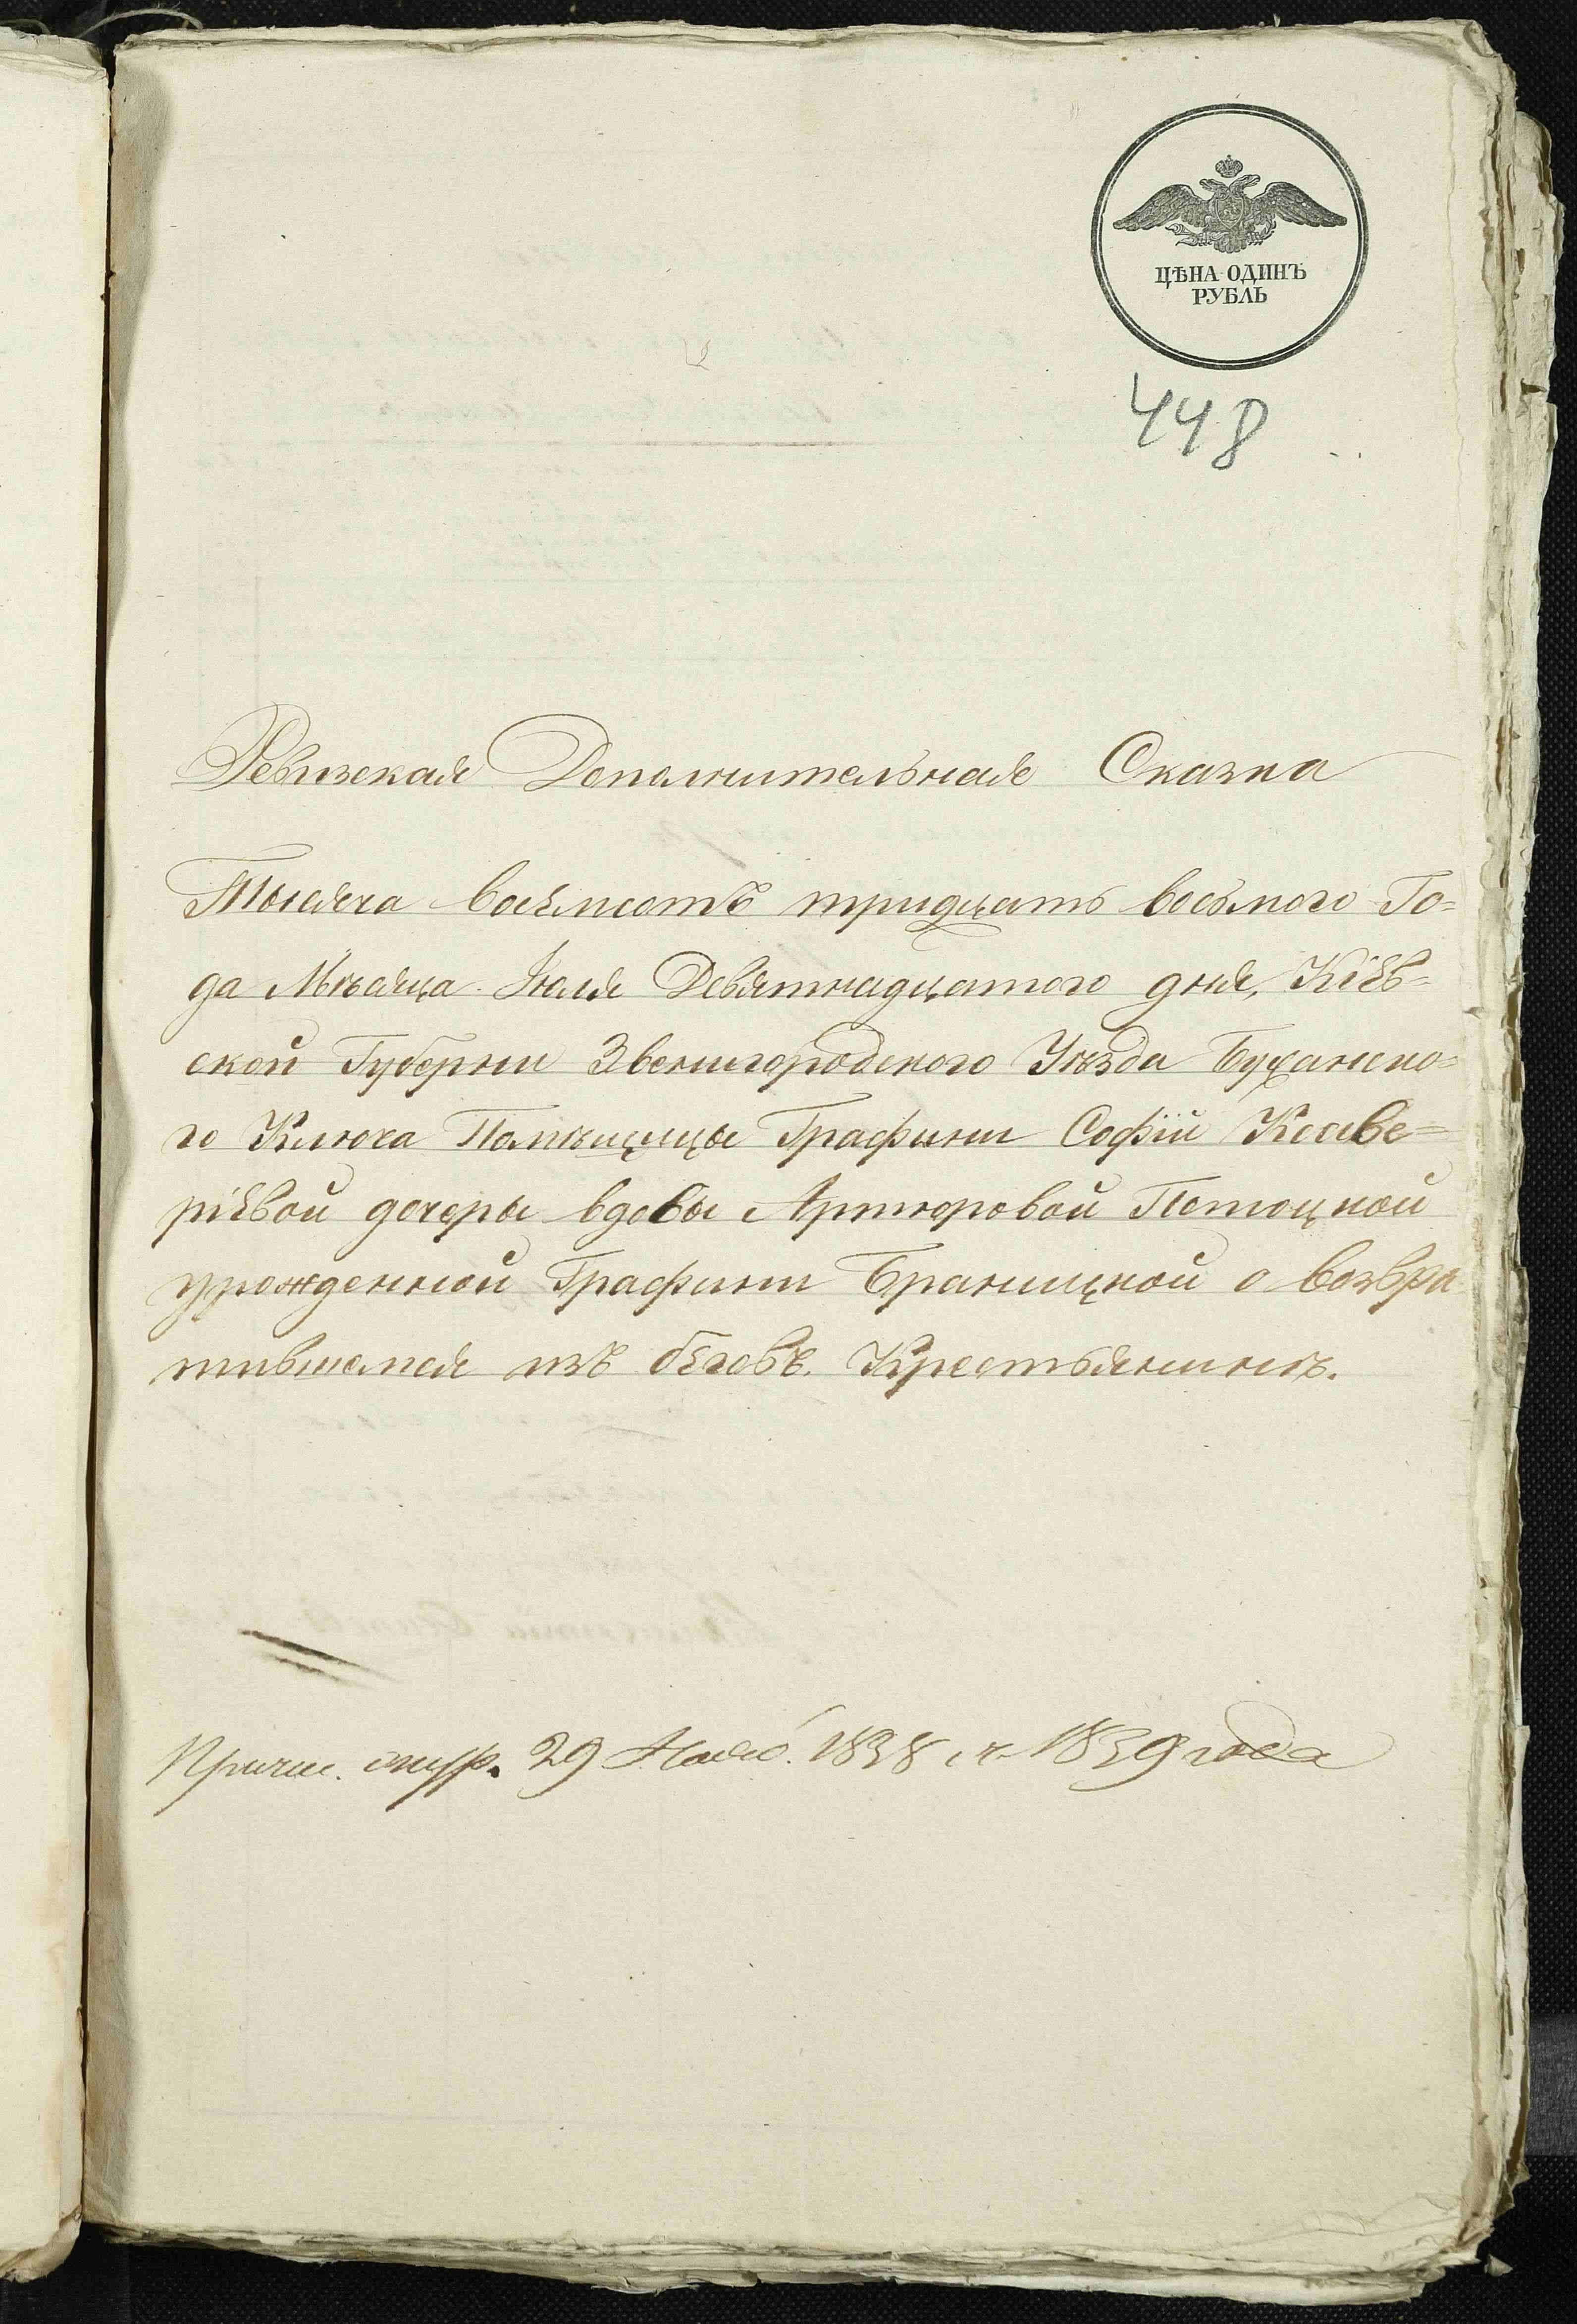 ЦѢНА ОДИНЪ
РУБЛЬ
448
Ревизская Дополнительная Сказка
Тысяча восемсотъ тридцать восьмого Го=
да Мѣсяца Іюля Девятнадцатого дня, Кіев=
ской Губерніи Звенигородского Уѣзда Бужанско=
го Ключа Помѣщицы Графини Софіи Ксаве=
ріевой дочеры вдовы Артюровой Потоцкой
урожденной Графини Браницкой о возвра
тившемся изъ бѣговъ Крестьянинѣ.
29 1838 1839 года